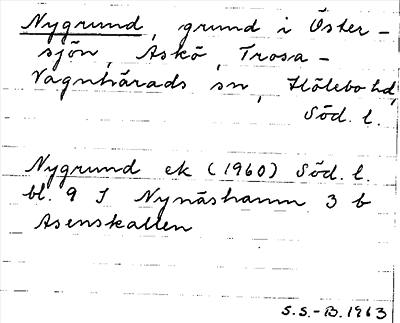 Nygrund, grund i Öster-
sjön, Askö, Trosa-
Vagnhärads sn, Hölebo hd,
Söd. l.
Nygrund ek (1960) Söd. l.
bl. 9 I Nynäshamn 3 b
Asenskallen
S.S.-B. 1963